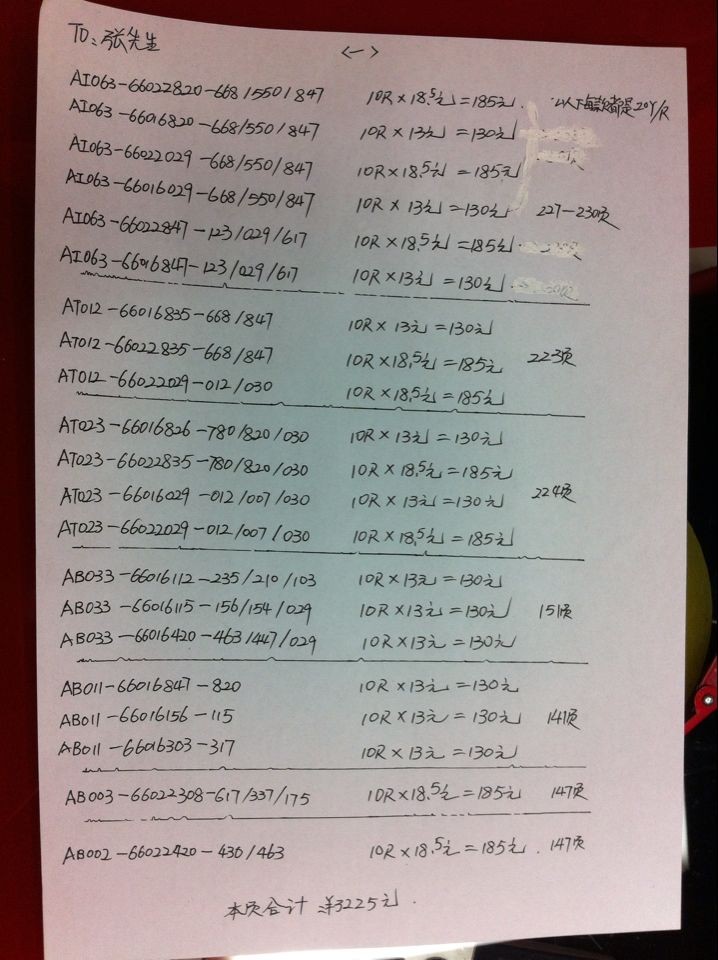 TO：张先生
<一>
AI063-66022820-668/550/847 10R×18.5元=185元. 以下每款都是20Y/R
AI063-66016820-668/550/847 10R×13元=130元
AI063-66022029-668/550/847 10R×18.5元=185元
AI063-66016029-668/550/847 10R×13元=130元 227-230页
AI063-66022847-123/029/617 10R×18.5元=185元
AI063-66016847-123/029/617 10R×13元=130元
AT012-66016835-668/847 10R×13元=130元
AT012-66022835-668/847 10R×18.5元=185元 223页
AT012-66022029-012/030 10R×18.5元=185元
AT023-66016826-780/820/030 10R×13元=130元
AT023-66022835-780/820/030 10R×18.5元=185元
AT023-66016029-012/007/030 10R×13元=130元 224页
AT023-66022029-012/007/030 10R×18.5元=185元
AB033-66016112-235/210/103 10R×13元=130元
AB033-66016115-156/154/029 10R×13元=130元 151页
AB033-66016420-463/447/029 10R×13元=130元
AB011-66016847-820 10R×13元=130元
AB011-66016156-115 10R×13元=130元 141页
AB011-66016303-317 10R×13元=130元
AB003-66022308-617/337/175 10R×18.5元=185元 147页
AB002-66022420-430/463 10R×18.5元=185元. 147页
本页合计 ¥3225元.